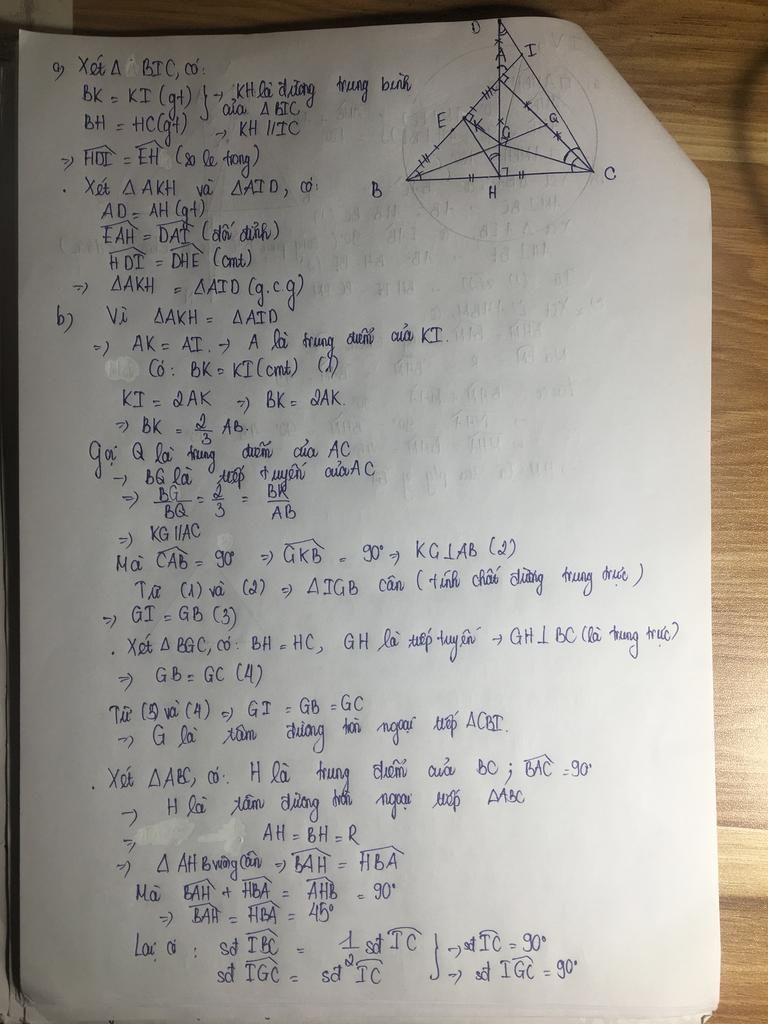 a) Xét Δ BIC, có:
BK = KI (gt) } → KH là đường trung bình
của Δ BIC
BH = HC (gt) → KH // IC
⇒ HDI = EH (so le trong)
. Xét Δ AKH và Δ AID, có:
AD = AH (gt)
EAH = DAI (đối đỉnh)
HDI = DHE (cmt)
⇒ ΔAKH = ΔAID (g.c.g)
b) Vì ΔAKH = ΔAID
⇒ AK = AI. → A là trung điểm của KI.
Có: BK = KI (cmt) (1)
KI = 2AK ⇒ BK = 2AK.
⇒ BK = 2/3 AB.
Gọi Q là trung điểm của AC
→ BQ là tiếp tuyến của AC
⇒ BG/BQ = 2/3 = BK/AB
⇒ KG // AC
Mà CAB = 90° ⇒ GKB = 90° → KG ⊥ AB (2)
Từ (1) và (2) ⇒ ΔIGB cân (tính chất đường trung trực)
⇒ GI = GB (3)
. Xét ΔBGC, có: BH = HC, GH là tiếp tuyến → GH ⊥ BC (là trung trực)
⇒ GB = GC (4)
Từ (3) và (4) ⇒ GI = GB = GC
⇒ G là tâm đường tròn ngoại tiếp ΔCBI.
. Xét ΔABC, có: H là trung điểm của BC; BAC = 90°
→ H là tâm đường tròn ngoại tiếp ΔABC
⇒ AH = BH = R
⇒ Δ AHB vuông cân ⇒ BAH = HBA
Mà BAH + HBA = AHB = 90°
⇒ BAH = HBA = 45°
Lại có: sđ IBC = 1/2 sđ IC } → sđ IC = 90°
sđ IGC = sđ IC → sđ IGC = 90°
D
A
I
E
K
G
Q
B
H
C